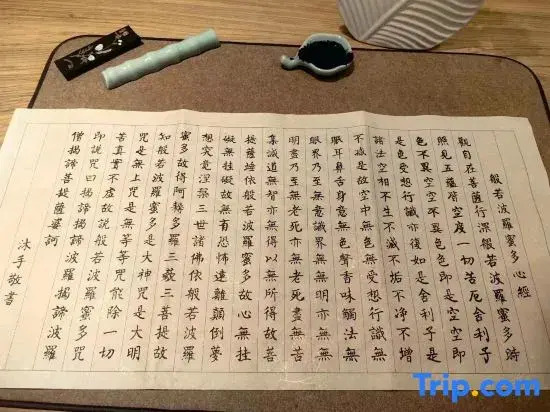 般若波羅蜜多心經
觀自在菩薩行深般若波羅蜜多時
照見五蘊皆空度一切苦厄舍利子
色不異空空不異色色即是空空即
是色受想行識亦復如是舍利子是
諸法空相不生不滅不垢不淨不增
不減是故空中無色無受想行識無
眼耳鼻舌身意無色聲香味觸法無
眼界乃至無意識界無無明亦無無
明盡乃至無老死亦無老死盡無苦
集滅道無智亦無得以無所得故菩
提薩埵依般若波羅蜜多故心無挂
礙無挂礙故無有恐怖遠離顛倒夢
想究竟涅槃三世諸佛依般若波羅
蜜多故得阿耨多羅三藐三菩提故
知般若波羅蜜多是大神咒是大明
咒是無上咒是無等等咒能除一切
苦真實不虛故說般若波羅蜜多咒
即說咒曰揭諦揭諦波羅揭諦波羅
僧揭諦菩提薩婆訶
沐手敬書
Trip.com